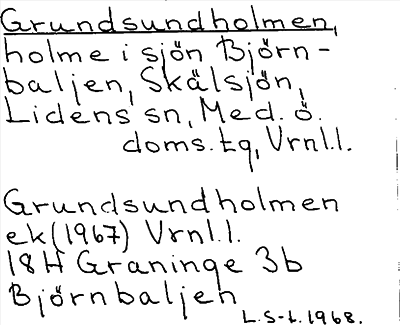 Grundsundholmen,
holme i sjön Björn-
baljen, Skälsjön,
Lidens sn, Med. ö.
doms. tg, Vrnl.l.
Grundsundholmen
ek (1967) Vrnl.l.
18H Graninge 3b
Björnbaljen
L.S-t. 1968.